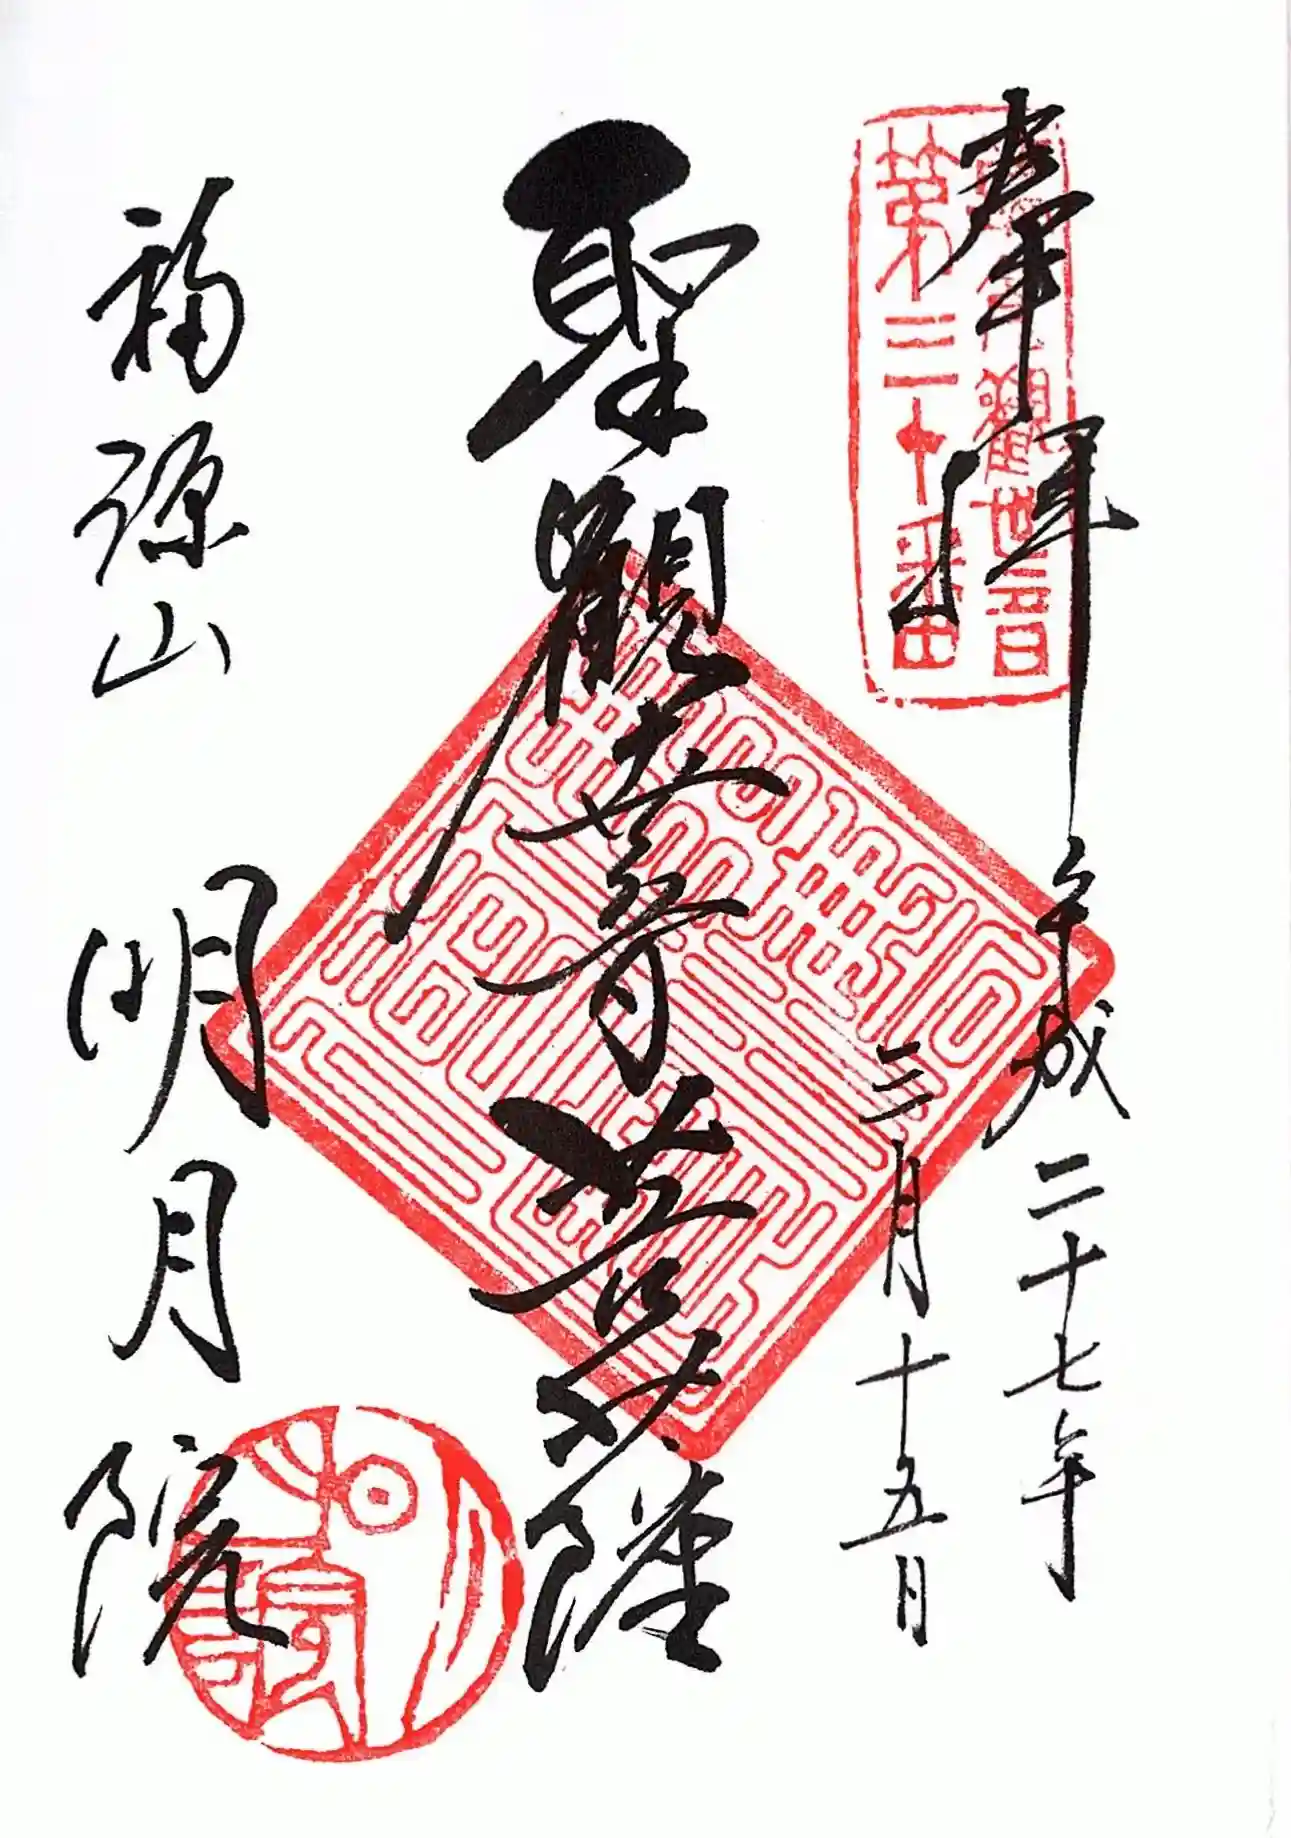 奉拝
鎌倉觀世音
第三十番
平成二十七年
三月十五日
聖觀世音菩薩
福源山
明月院